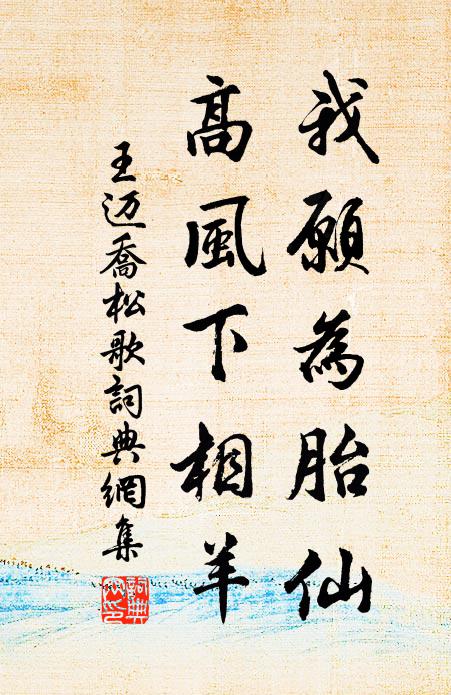 我願為胎仙
高風下相羊
王迈喬松歌詞典網集